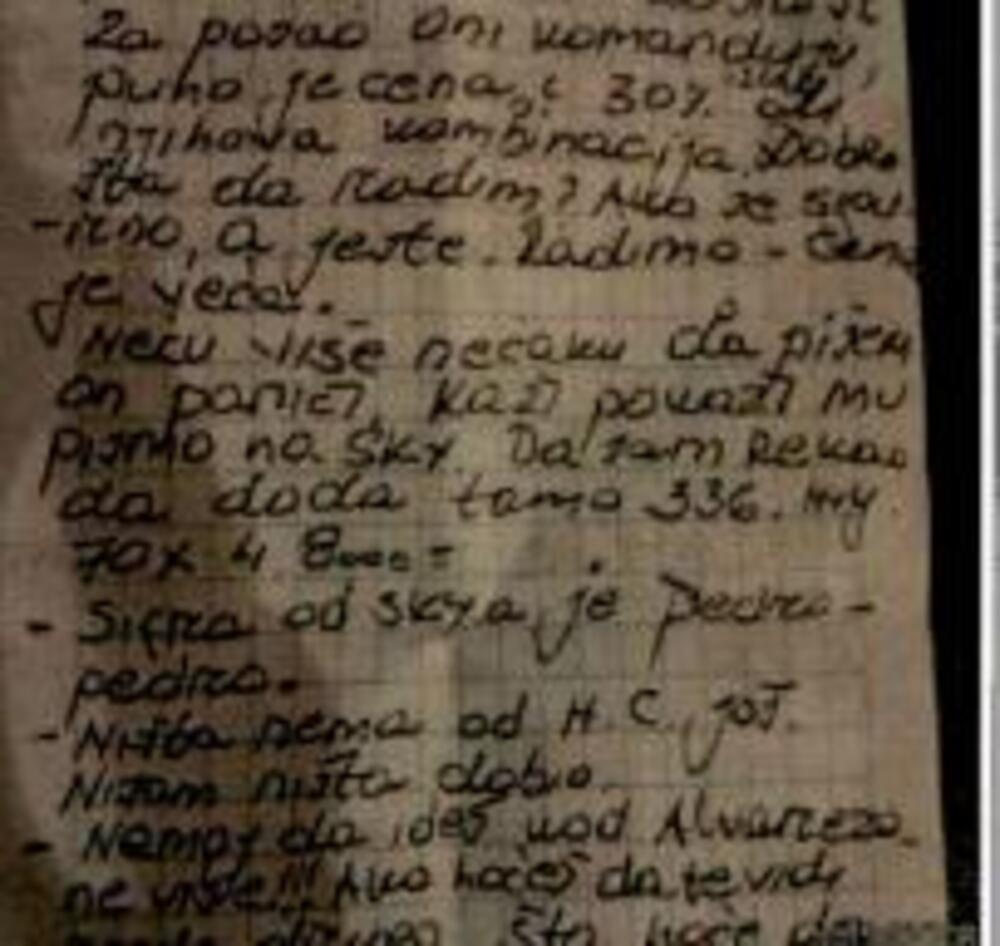 Za posao oni komanduju,
puno je cena, i 30% sad
njihova kombinacija. Dobro
šta da radim? Ako se stav
-irno, a jeste. Radimo - cena
je veća.
Neću više nećaku da pišem
on paniči, kaži pokaži mu
pismo na sky. Da sam rekao
da doda tamo 336. my.
70x 4 8000=
- Sifra od skya je pedro-
pedro.
- Ništa nema od H.C. još.
Nisam ništa dobio.
- Nemoj da ideš kod Alvareza
ne vrede!!! Ako hoćeš da te vidi
što hoće